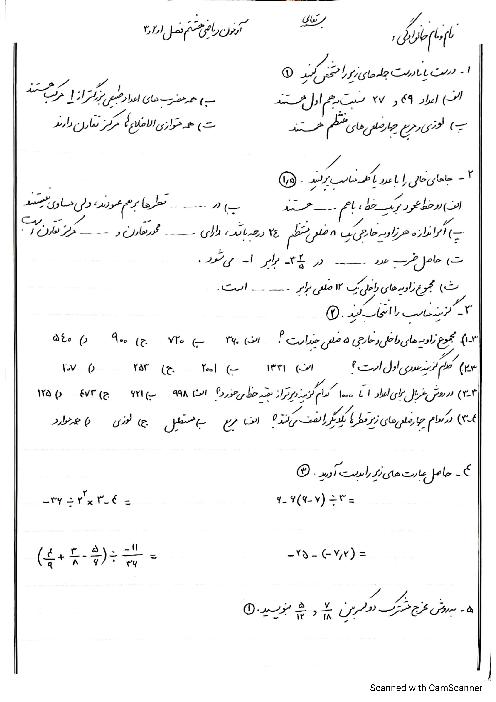 بسمه تعالی
نام و نام خانوادگی :
آزمون ریاضی هشتم فصل ۱و۲و۳
۱- درست یا نادرست جمله‌های زیر را مشخص کنید ①
الف) اعداد ۴۹ و ۲۷ نسبت به هم اول هستند ب) همه مضرب های اعداد طبیعی بزرگتر از ۱ مرکب هستند
پ) لوزی و مربع چهارضلعی های منتظم هستند ت) همه متوازی الاضلاع ها مرکز تقارن دارند
۲- جاهای خالی را با عدد یا کلمه مناسب پر کنید . (۱٫۵)
الف) دو خط عمود بر یک خط، با هم ...... هستند ب) در ........ قطرها بر هم عمودند، ولی مساوی نیستند
پ) اگر اندازه هر زاویه خارجی یک ۸ ضلعی منتظم ۲۴ درجه باشد، دارای ...... محور تقارن و ...... مرکز تقارن است
ت) حاصل ضرب عدد ........ در -۳ ۲/۵ برابر ۱- می شود .
ث) مجموع زاویه های داخلی یک ۱۲ ضلعی برابر ........ است.
۳- گزینه مناسب را انتخاب کنید . ②
۳-۱) مجموع زاویه های داخلی و خارجی ۵ ضلعی چند است؟ الف) ۳۶۰ ب) ۷۲۰ ج) ۹۰۰ د) ۵۴۰
۳-۲) کدام گزینه عددی اول است؟ الف) ۱۳۲۱ ب) ۲۰۰۱ ج) ۲۵۲ د) ۱۰۷
۳-۳) در روش غربال برای اعداد ۱ تا ۱۰۰۰ کدام گزینه دیرتر از بقیه خط می خورد؟ الف) ۹۹۸ ب) ۶۲۱ ج) ۴۷۳ د) ۱۲۵
۳-۴) در کدام چهارضلعی های زیر قطر ها یکدیگر را نصف می کنند؟ الف) مربع ب) مستطیل ج) لوزی د) همه موارد
۴- حاصل عبارت های زیر را بدست آورید . ③
۶-۶(۹-۷)÷۳=
-۳۶÷۲²×۳-۴=
-۲۵-(-۷٫۲)=
(۴/۹+۳/۸-۵/۶)÷-۱۱/۳۶=
۵- به روش مخرج مشترک دو کسر بین ۷/۱۸ و ۵/۱۲ بنویسید. ①
Scanned with CamScanner